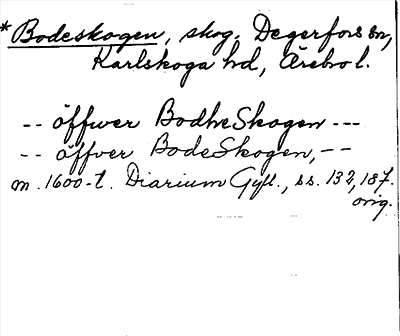 *Bodeskogen, skog, Degerfors sn,
Karlskoga hd, Örebro l.
-- öffwer BodheSkogen ---
-- öffver BodeSkogen, --
m. 1600-t. Diarium Gyll., ss. 132, 187.
orig.